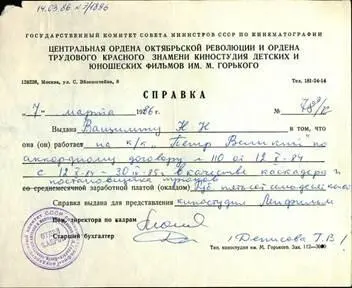 14.03.86 № 7/1886
ГОСУДАРСТВЕННЫЙ КОМИТЕТ СОВЕТА МИНИСТРОВ СССР ПО КИНЕМАТОГРАФИИ
ЦЕНТРАЛЬНАЯ ОРДЕНА ОКТЯБРЬСКОЙ РЕВОЛЮЦИИ И ОРДЕНА
ТРУДОВОГО КРАСНОГО ЗНАМЕНИ КИНОСТУДИЯ ДЕТСКИХ И
ЮНОШЕСКИХ ФИЛЬМОВ ИМ. М. ГОРЬКОГО
Москва, ул. С. Эйзенштейна, 8
Тел. 181-24-14
СПРАВКА
"7" марта 1986 г.
№
Выдана Н Н в том, что
она (он) работает на к/к "Петр Великий" по
аккордному договору – 110 от 12 X – 84
с 12 X – 84 – в качестве каскадера и
постановщика трюков
со среднемесячной заработной платой (окладом)
Справка выдана для представления киностудия Ленфильм
Пом. директора по кадрам
Старший бухгалтер
(Денисова Т. В)
Тип. киностудии им. М. Горького. Зак.